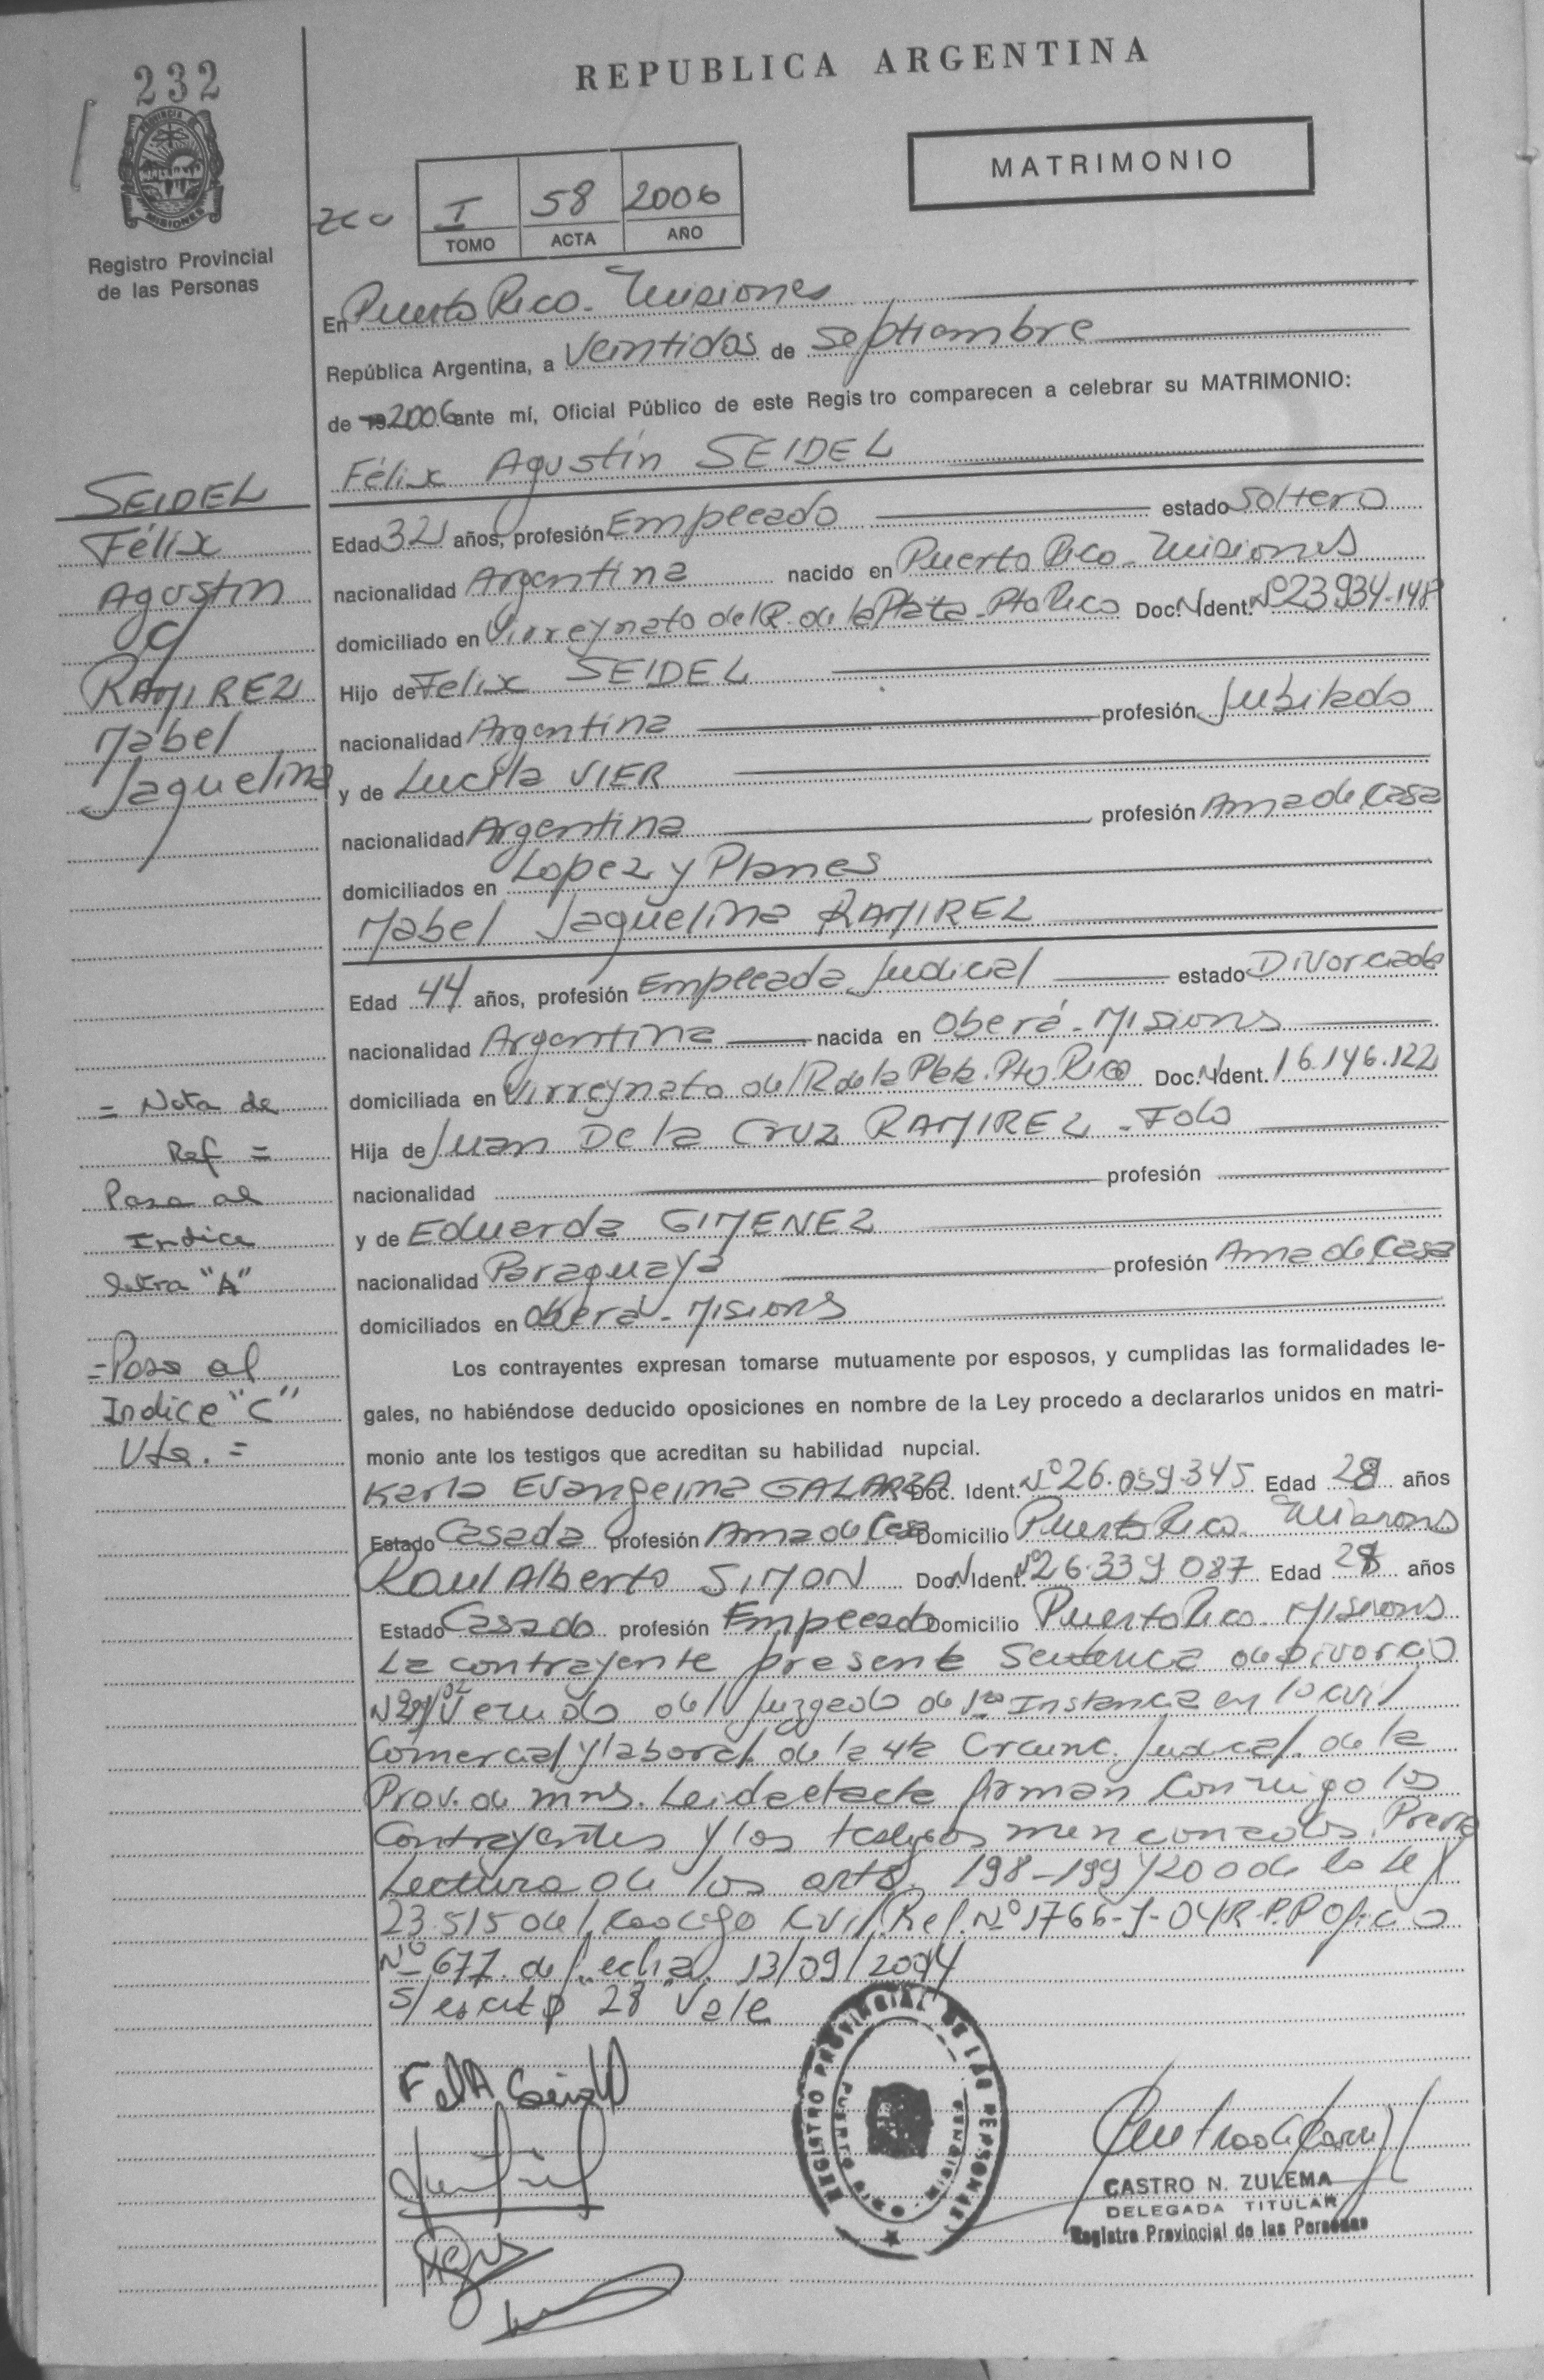 232
REPUBLICA ARGENTINA
PROVINCIA DE MISIONES
Registro Provincial
de las Personas
MATRIMONIO
I 58 2006
TOMO ACTA AÑO
En Puerto Rico - Misiones
República Argentina, a Veintidos de Septiembre
de 2006 ante mí, Oficial Público de este Registro comparecen a celebrar su MATRIMONIO:
Félix Agustín SEIDEL
SEIDEL
Félix
Agustín
y
RAMIREZ
Mabel
Jaquelina
Edad 32 años, profesión Empleado estado Soltero
nacionalidad Argentina nacido en Puerto Rico - Misiones
domiciliado en Virreynato del R. de la Plata - Pto Rico Doc. N. Ident. Nº 23934-148
Hijo de Felix SEIDEL
nacionalidad Argentina profesión Jubilado
y de Lucila VIER
nacionalidad Argentina profesión Ama de Casa
domiciliados en Lopez y Planes
Mabel Jaquelina RAMIREZ
Edad 44 años, profesión Empleada Judicial estado Divorciada
nacionalidad Argentina nacida en Oberá - Misions
domiciliada en Virreynato del R de la Plata. Pto. Rico Doc. N. Ident. 16.146.122
Hija de Juan De la Cruz RAMIREZ - Fdo
nacionalidad profesión
y de Eduarda GIMENEZ
nacionalidad Paraguaya profesión Ama de Casa
domiciliados en Oberá - Misions
= Nota de
Ref =
Pasa al
Indice
letra "A"
= Pasa al
Indice "C"
Vta. =
Los contrayentes expresan tomarse mutuamente por esposos, y cumplidas las formalidades le-
gales, no habiéndose deducido oposiciones en nombre de la Ley procedo a declararlos unidos en matri-
monio ante los testigos que acreditan su habilidad nupcial.
Karla Evangelina GALARZA Doc. Ident. Nº 26.059.345 Edad 28 años
Estado Casada profesión Ama de Casa Domicilio Puerto Rico Misions
Raul Alberto SIMON Doc. N Ident. Nº 26.339.087 Edad 28 años
Estado Casado profesión Empleado Domicilio Puerto Rico - Misions
La contrayente presente Sentencia de Divorcio
del Juzgado de 1ra Instancia en lo Civil
Comercial y laboral de la 4ta Circunc. Judicial. de la
Prov. de mns. Leida el acta firman Conmigo los
Contrayentes y los testigos mencionados. Previa
Lectura de los arts. 198-199 y 200 de la Ley
23.515 del Codigo Civil. Ref. Nº 1766-J-04 R.P.P Oficio
Nº 677 de fecha 13/09/2004
S/ escrito 28 "Vale
REGISTRO PROVINCIAL DE LAS PERSONAS
PUERTO RICO
CASTRO N. ZULEMA
DELEGADA TITULAR
Registro Provincial de las Personas